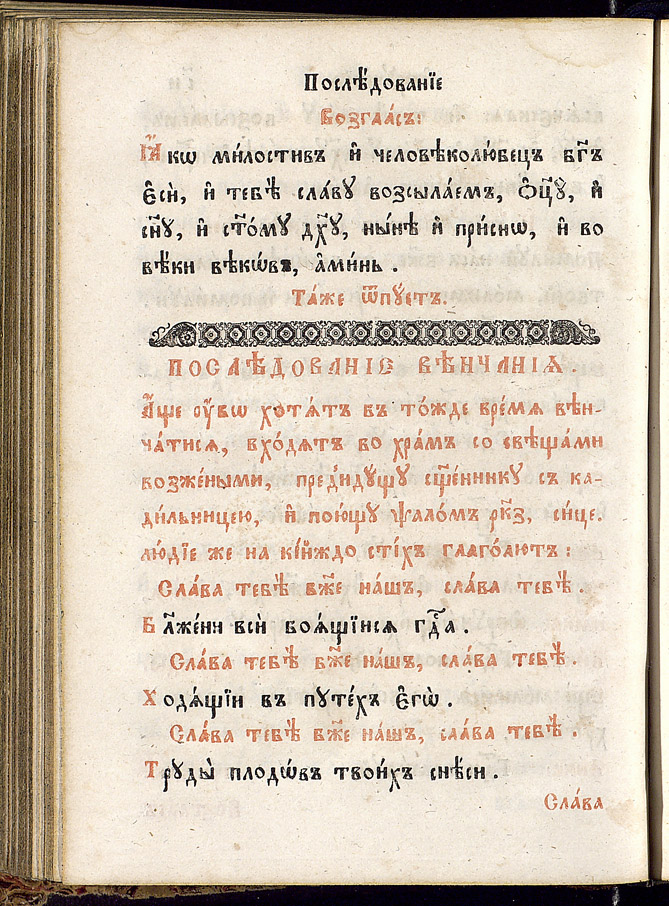 Послѣ́дованїе
Возгла́съ:
Ꙗ҆́кѡ ми́лостивъ и҆ человѣколю́бецъ бг҃ъ
є҆сѝ, и҆ тебѣ̀ сла́вꙋ возсыла́емъ, ѻ҆ц҃ꙋ̀, и҆
сн҃ꙋ, и҆ ст҃о́мꙋ дх҃ꙋ, ны́нѣ и҆ при́снѡ, и҆ во
вѣ́ки вѣкѡ́въ, а҆ми́нь .
Та́же ѿпꙋ́стъ.
ПОСЛѢ́ДОВАНІЕ ВѢНЧА́НІѦ .
А҆́ще ᲂу҆́бѡ хотѧ́тъ въ то́жде вре́мѧ вѣн-
ча́тисѧ, вхо́дѧтъ во хра́мъ со свѣща́ми
возже́ными, пред̾идꙋ́щꙋ сщ҃е́нникꙋ съ ка-
ди́льницею, и҆ пою́щꙋ ѱало́мъ рк҃з, си́це.
лю́дїе же на кі́йждо сті́хъ глаго́лютъ :
Сла́ва тебѣ̀ бж҃е на́шъ, сла́ва тебѣ̀ .
Бл҃же́ни всѝ боѧ́щїисѧ гдⷭ҇а .
Сла́ва тебѣ̀ бж҃е на́шъ, сла́ва тебѣ̀ .
Ходѧ́щїи въ пꙋте́хъ є҆гѡ̀ .
Сла́ва тебѣ̀ бж҃е на́шъ, сла́ва тебѣ̀ .
Трꙋды̀ плодѡ́въ твои́хъ снѣ́си .
Сла́ва